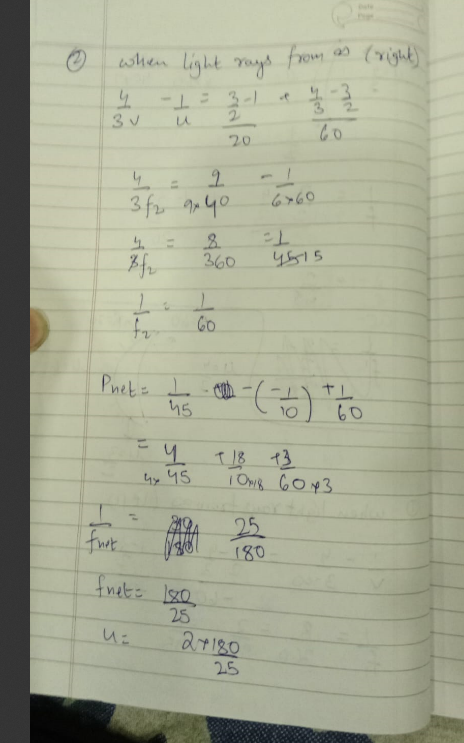 ② when light rays from ∞ (right)
4/3v - 1/u = (3/2 - 1)/20 + (4/3 - 3/2)/60
4/3f₂ = 9/9×40 - 1/6×60
4/3f₂ = 8/360 = 1/45 15
1/f₂ = 1/60
Pnet = 1/45 - (-1/10) + 1/60
= 4/4×45 + 18/10×18 + 3/60×3
1/fnet = 25/180
fnet = 180/25
u = 2×180/25